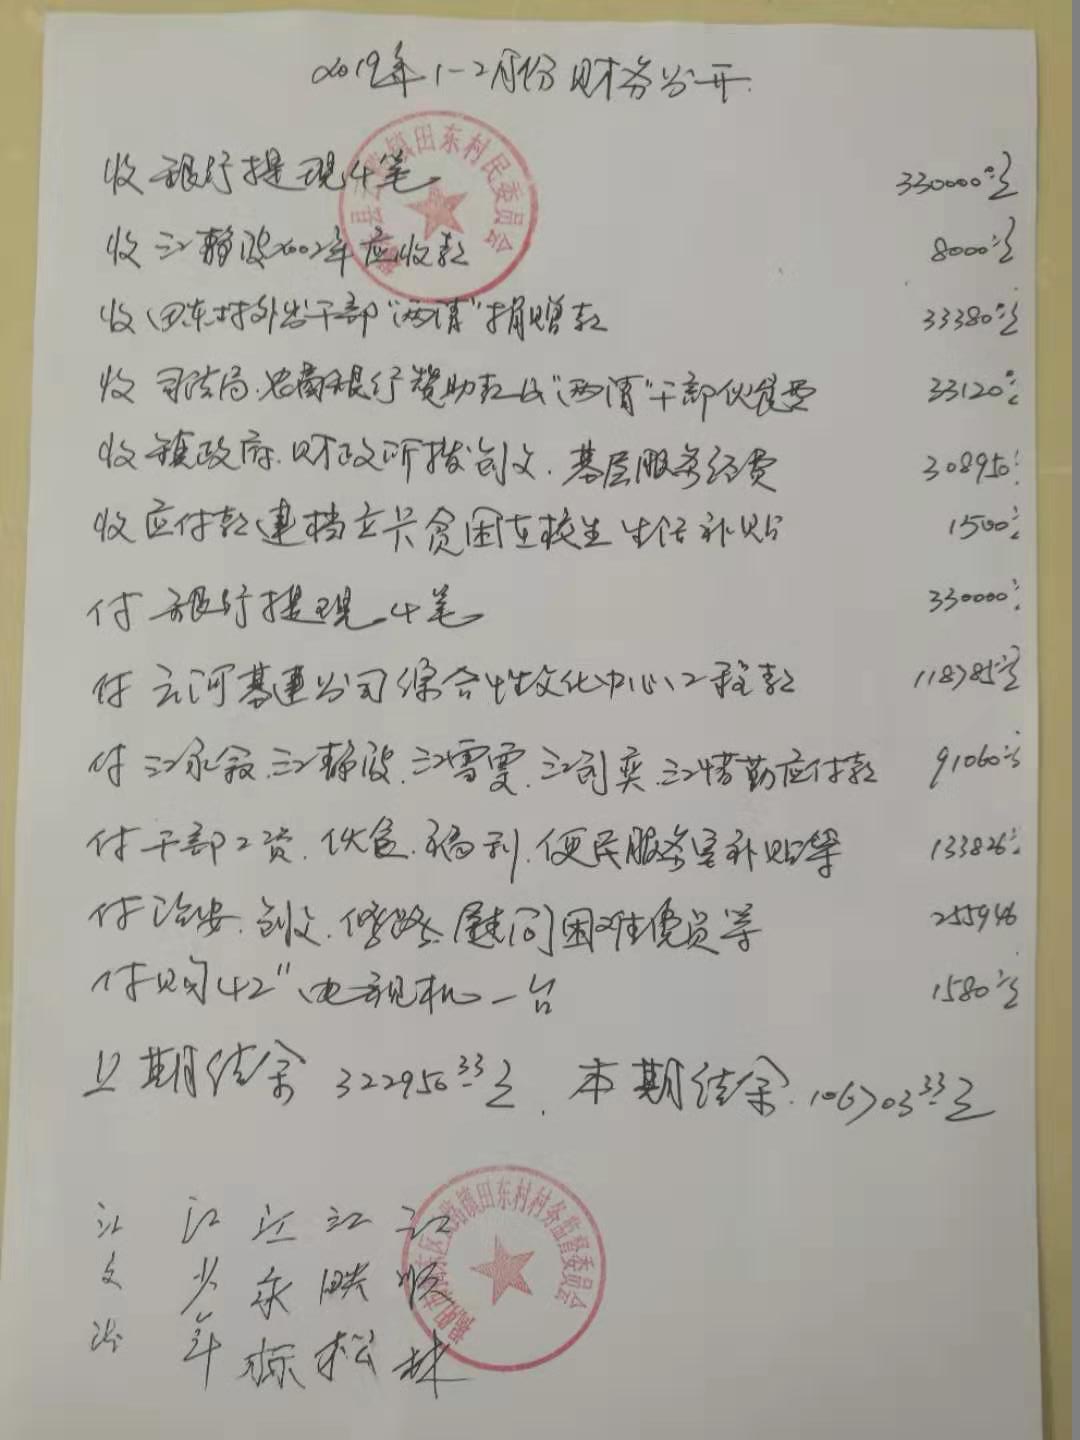 2019年1-2月份财务公开
收银行提现4笔 330000元
收江静波2002年应收款 8000元
收田东村外出干部"两清"捐赠款 33380元
收司法局、农商银行赞助款及"两清"干部伙食费 33120元
收镇政府、财政所拨创文、基层服务经费 308950元
收应付款建档立卡贫困在校生生活补贴 1500元
付银行提现4笔 330000元
付云河基建公司综合性文化中心工程款 118785元
付江永 、江静波、江雪雯、江 奕、江 勤应付款 91060元
付干部工资、伙食、福利、便民服务室补贴等 133826元
付治安、创文、修路、慰问困难党员等 255946
付购42"电视机一台 1580元
上期结余322950.33元、本期结余106703.33元
江文
江少年
江永标
江映松
江顺林
镇田东村民委员会
东区 路镇田东村村务监督委员会